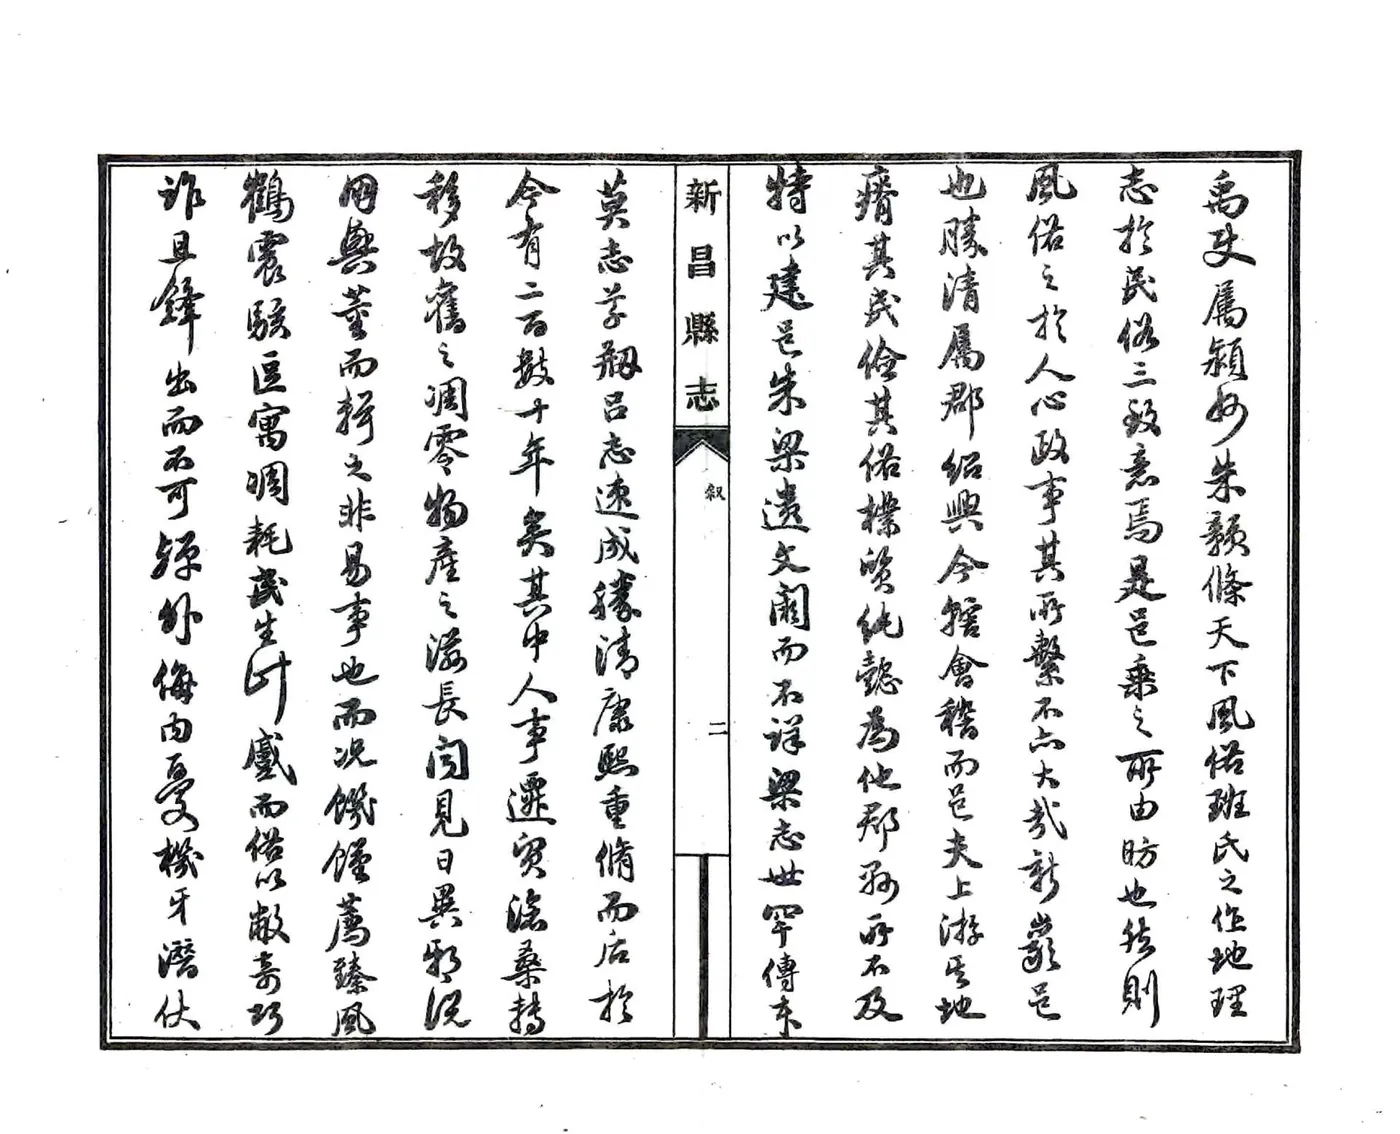 禹使屬潁川朱贛條天下風俗班氏之作地理
志於民俗三致意焉是邑乘之所由昉也然則
風俗之於人心政事其所繫不亦大哉新巖邑
也勝清屬郡紹興今轄會稽而邑夫上游其地
瘠其民儉其俗樸質純懿為他郡縣所不及
特以建邑朱梁遺文闕而不詳梁志世罕傳本
新昌縣志
叙
二
莫志草刱呂志速成勝清康熙重脩而后於
今有二百數十年矣其中人事遷貿滄桑轉
移故舊之凋零物產之滋長聞見日異邪說
朋興薈而輯之非易事也而况饑饉薦臻風
鶴震駭區寓凋耗民生計蹙而俗以敝奇巧
詐且鋒出而不可殫外侮內憂機牙潛伏